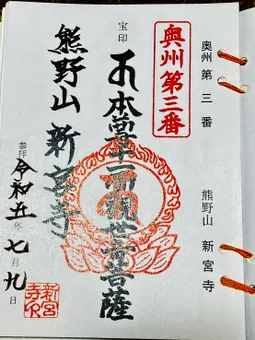 奥州第三番
熊野山 新宮寺
奥州第三番
宝印
本尊十一面観世音菩薩
熊野山 新宮寺
参拝 令和五年 七月 九日
新宮寺印